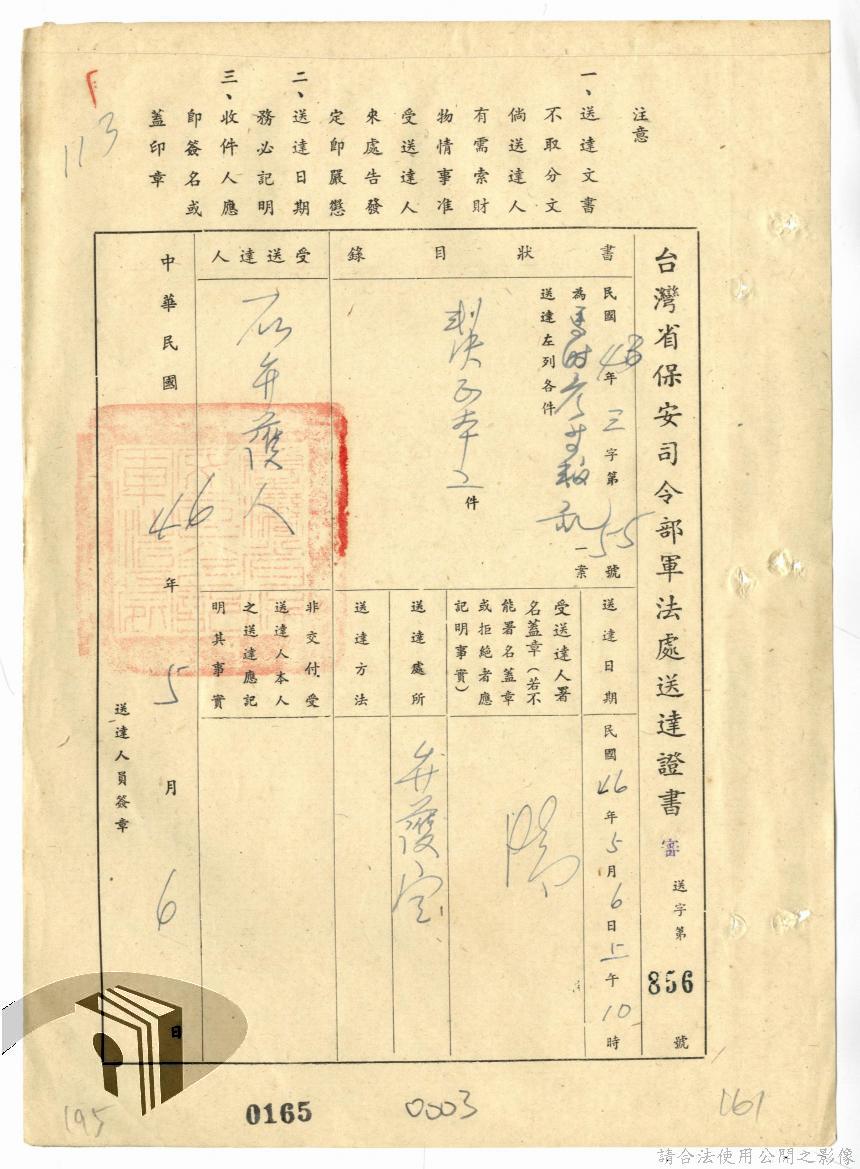 注意
一、送達文書
不取分文
倘送達人
有需索財
物情事准
受送達人
來處告發
定即嚴懲
二、送達日期
務必記明
三、收件人應
即簽名或
蓋印章
113
台灣省保安司令部軍法處送達證書 審 送字第 856 號
書狀目錄
民國 43 年 三 字第 55 號
為馬時彥等叛亂一案
送達左列各件
判決正本 件
受送達人
石弁護人
送達日期
民國 46 年 5 月 6 日 上午 10 時
受送達人署
名蓋章(若不
能署名蓋章
或拒絕者應
記明事實)
送達處所
弁護室
送達方法
非交付受
送達人本人
之送達應記
明其事實
中華民國 46 年 5 月 6 日
送達人員簽章
195
0165
0003
161
請合法使用公開之影像